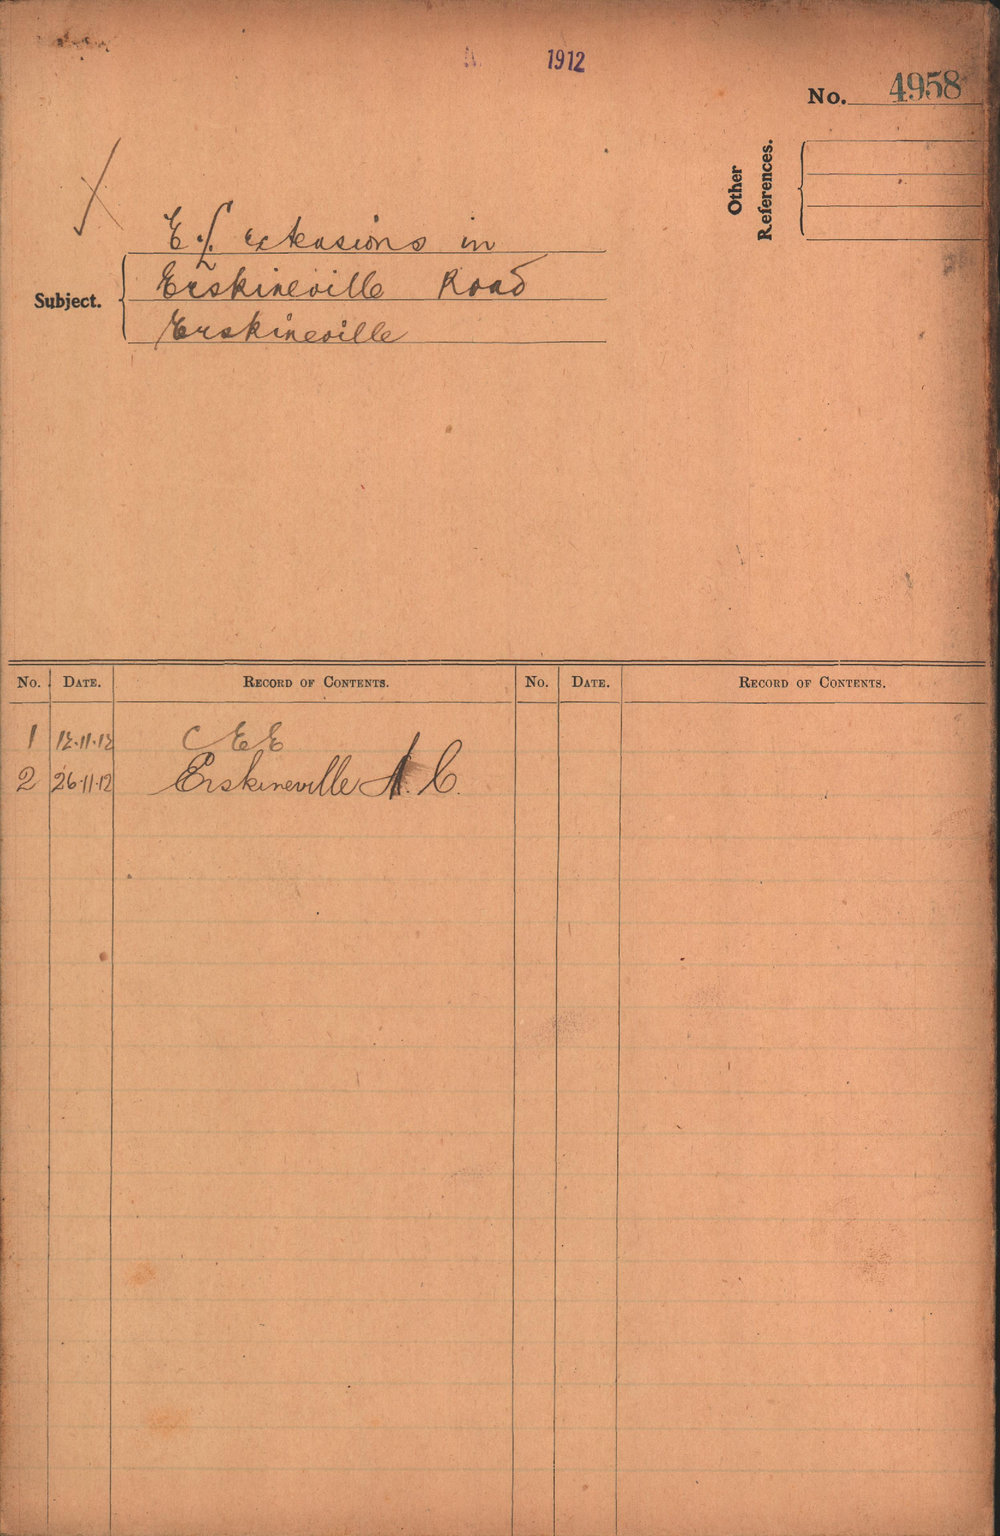 1912
No. 4958
Other
References.
E.L extensions in
Subject. Erskineville Road
Erskineville
No. DATE. RECORD OF CONTENTS. No. DATE. RECORD OF CONTENTS.
1 12.11.12 C E E
2 26.11.12 Erskineville A. C.